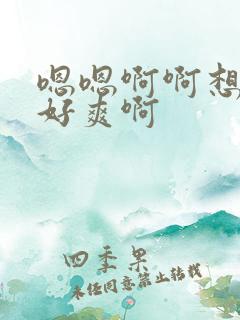 嗯嗯啊啊想
好爽啊
四季果
未经同意禁止转载